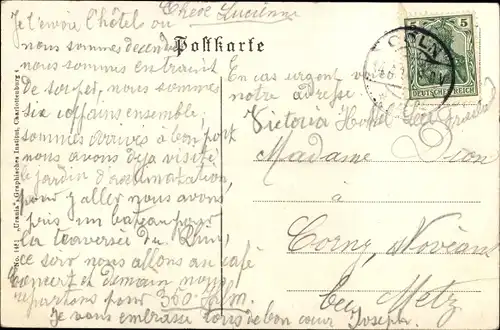 Chère Lucienne
Je t'envoie l'hôtel où
nous sommes descendus
nous sommes en train
de souper, nous sommes
six enfants ensemble,
sommes arrivés à bon port
nous avons déja visité
le jardin d'acclimatation,
pour y aller nous avons
pris un bateau pour
la traversée du Rhin,
ce soir nous allons au café
concert et demain nous
repartons pour
Je vous embrasse tous de bon cœur Joseph.
Postkarte
En cas urgent
notre adresse.
Victoria Hôtel
Madame Dion
à
Corny, Novéant
bei Metz
5 5
DEUTSCHES REICH
CÖLN
No. 1421 "Urania", Graphisches Institut, Charlottenburg 4